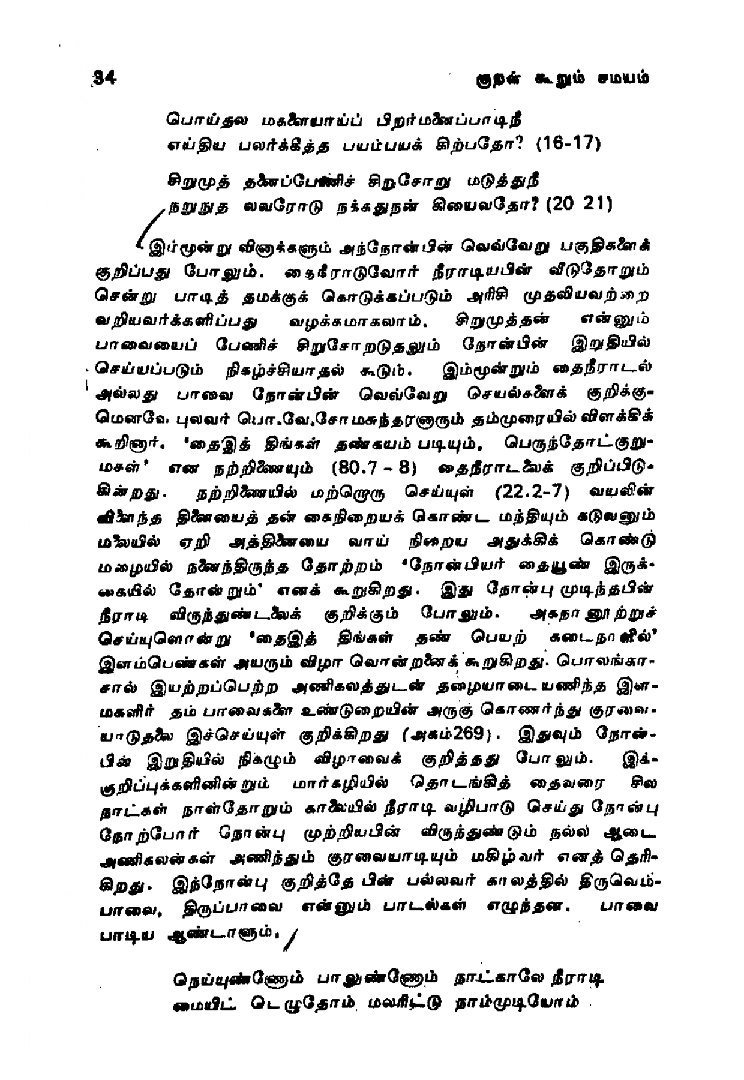 34 குறள் கூறும் சமயம்
பொய்தல மகளையாய்ப் பிறர்மனைப்பாடிநீ
எய்திய பலர்க்கீத்த பயம்பயக் கிற்பதோ? (16-17)
சிறுமுத் தனைப்பேணிச் சிறுசோறு மடுத்துநீ
நறுநுத லவரோடு நக்கதுநன் கியைவதோ? (20 21)
இம்மூன்று வினாக்களும் அந்நோன்பின் வெவ்வேறு பகுதிகளைக்
குறிப்பது போலும். தைநீராடுவோர் நீராடியபின் வீடுதோறும்
சென்று பாடித் தமக்குக் கொடுக்கப்படும் அரிசி முதலியவற்றை
வறியவர்க்களிப்பது வழக்கமாகலாம். சிறுமுத்தன் என்னும்
பாவையைப் பேணிச் சிறுசோறடுதலும் நோன்பின் இறுதியில்
செய்யப்படும் நிகழ்ச்சியாதல் கூடும். இம்மூன்றும் தைநீராடல்
அல்லது பாவை நோன்பின் வெவ்வேறு செயல்களைக் குறிக்கு-
மெனவே. புலவர் பொ.வே.சோமசுந்தரனாரும் தம்முரையில் விளக்கிக்
கூறினார். 'தைஇத் திங்கள் தண்கயம் படியும், பெருந்தோட்குறு-
மகள்' என நற்றிணையும் (80.7 – 8) தைநீராடலைக் குறிப்பிடு-
கின்றது. நற்றிணையில் மற்றொரு செய்யுள் (22.2-7) வயலின்
விளைந்த தினையைத் தன் கைநிறையக் கொண்ட மந்தியும் கடுவனும்
மலையில் ஏறி அத்தினையை வாய் நிறைய அதுக்கிக் கொண்டு
மழையில் நனைந்திருந்த தோற்றம் 'நோன்பியர் தையூண் இருக்-
கையில் தோன்றும்' எனக் கூறுகிறது. இது நோன்பு முடிந்தபின்
நீராடி விருந்துண்டலைக் குறிக்கும் போலும். அகநானூற்றுச்
செய்யுளொன்று 'தைஇத் திங்கள் தண் பெயற் கடைநாளில்'
இளம்பெண்கள் அயரும் விழா வொன்றனைக் கூறுகிறது. பொலங்கா-
சால் இயற்றப்பெற்ற அணிகலத்துடன் தழையாடை யணிந்த இள-
மகளிர் தம் பாவைகளை உண்டுறையின் அருகு கொணர்ந்து குரவை-
யாடுதலை இச்செய்யுள் குறிக்கிறது (அகம்269). இதுவும் நோன்-
பின் இறுதியில் நிகழும் விழாவைக் குறித்தது போலும். இக்-
குறிப்புக்களினின்றும் மார்கழியில் தொடங்கித் தைவரை சில
நாட்கள் நாள்தோறும் காலையில் நீராடி வழிபாடு செய்து நோன்பு
நோற்போர் நோன்பு முற்றியபின் விருந்துண்டும் நல்ல ஆடை
அணிகலன்கள் அணிந்தும் குரவையாடியும் மகிழ்வர் எனத் தெரி-
கிறது. இந்நோன்பு குறித்தே பின் பல்லவர் காலத்தில் திருவெம்-
பாவை, திருப்பாவை என்னும் பாடல்கள் எழுந்தன. பாவை
பாடிய ஆண்டாளும்,
நெய்யுண்ணோம் பாலுண்ணோம் நாட்காலே நீராடி
மையிட் டெழுதோம் மலரிட்டு நாம்முடியோம்